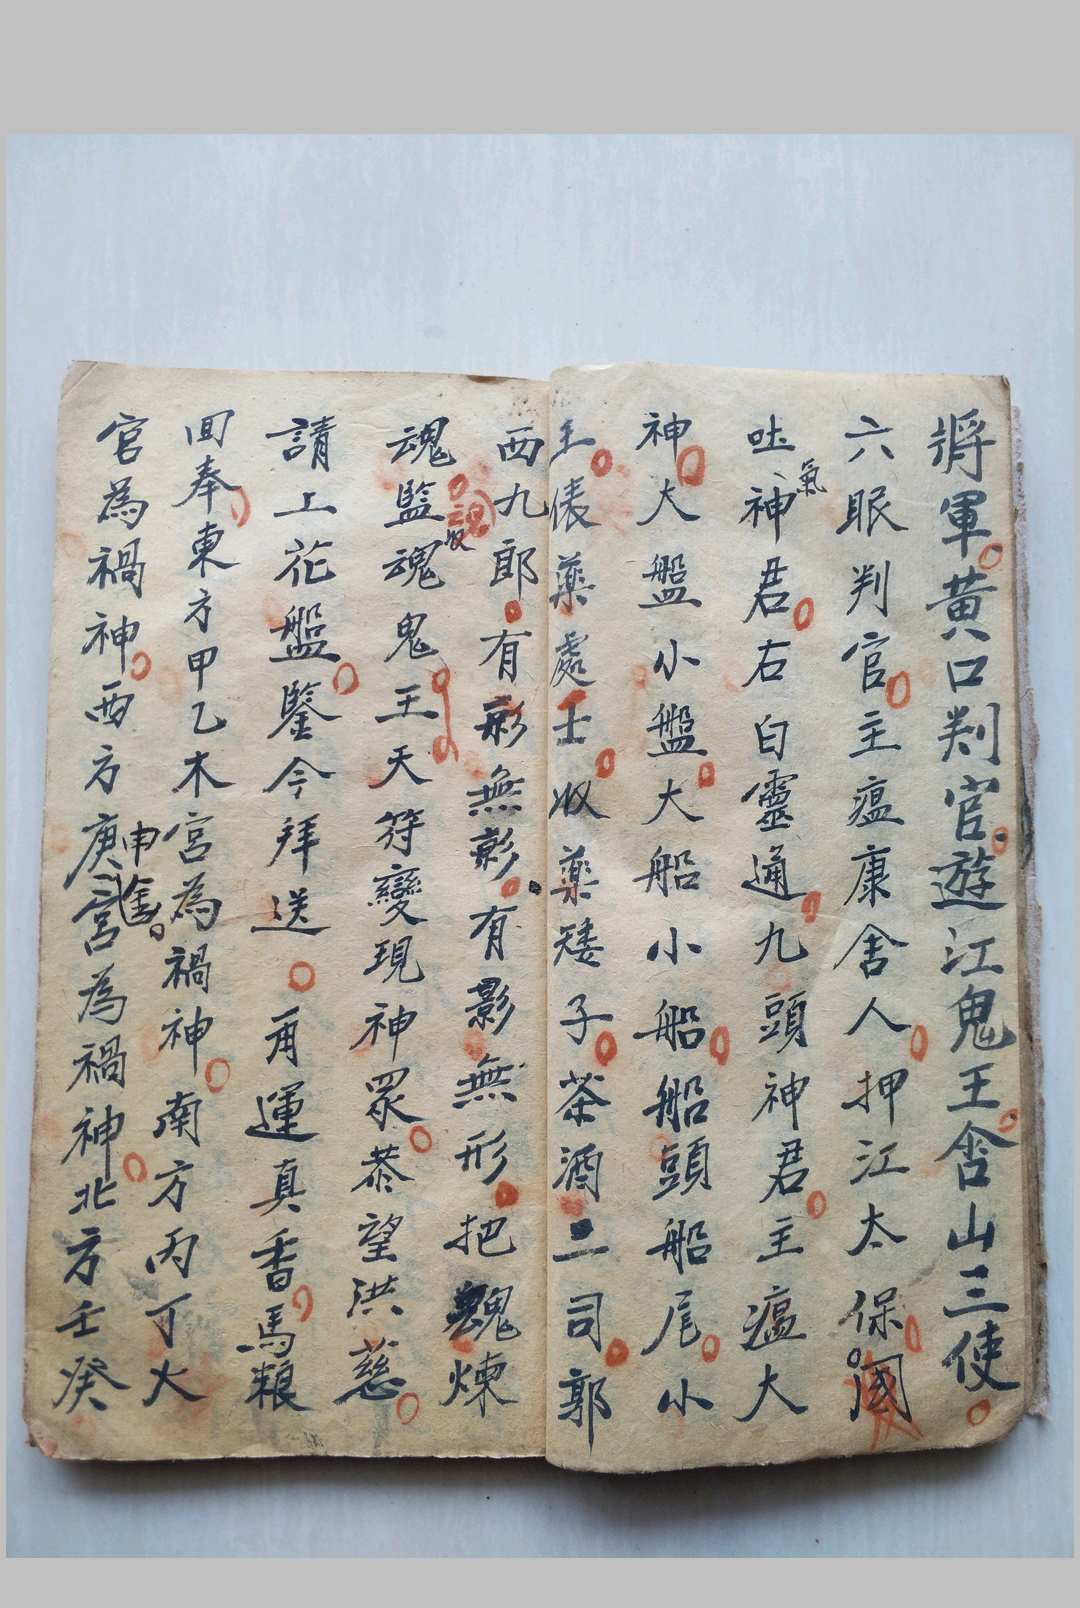 將軍黃口判官遊江鬼王舍山三使
六眼判官主瘟康舍人押江太保國
吐神氣君右白靈通九頭神君主瘟大
神大盤小盤大船小船船頭船尾小
王俵藥處士收藥矮子茶酒二司郭
西九郎有形無影有影無形把魂煉
魂監收魂鬼王天符變現神眾恭望洪慈
請上花盤鑒今拜送再運真香馬粮
回奉東方甲乙木宮為禍神南方丙丁火
官為禍神西方庚申金宮為禍神北方壬癸